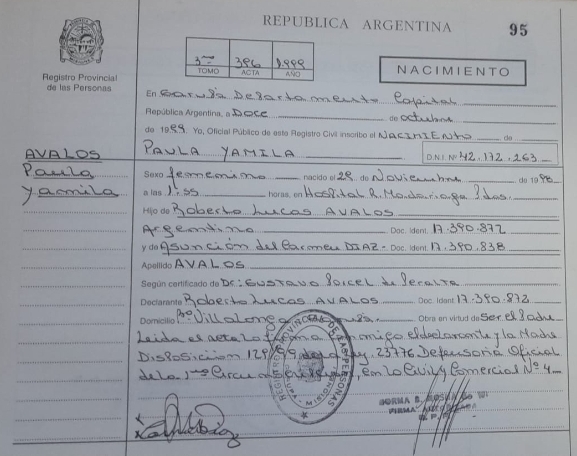 REPUBLICA ARGENTINA
95
Registro Provincial
de las Personas
3ro 396 1.999
TOMO ACTA AÑO
NACIMIENTO
En Garupá Departamento Capital
República Argentina, a Doce de octubre
de 1999 Yo, Oficial Público de este Registro Civil inscribo el NACIMIENTO de
PAULA YAMILA D.N.I. Nº 42.172.263
AVALOS
Paula
Yamila
Sexo femenino nacido el 29 de Noviembre de 1998
a las 1.55 horas, en Hospital R. Madariaga Pdas.
Hijo de Roberto Lucas AVALOS
Argentino Doc. Ident. 17.390.872
y de Asunción del Carmen DIAZ - Doc. Ident. 17.390.838
Apellido AVALOS
Según certificado de Dr: Gustavo Poicel de Peralta
Declarante Roberto Lucas AVALOS Doc. Ident. 17.390.872
Domicilio Bº Villalonga Obra en virtud de Ser el Padre
Leida el acta la firma conmigo el declarante y la Madre
Disposicion 23776 Defensoria Oficial
de la 1ra Circunscripcion, en lo Civil y Comercial Nº 4
REGISTRO PROVINCIAL DE LAS PERSONAS
MISIONES
NORMA B.
FIRMA AUTORIZADA